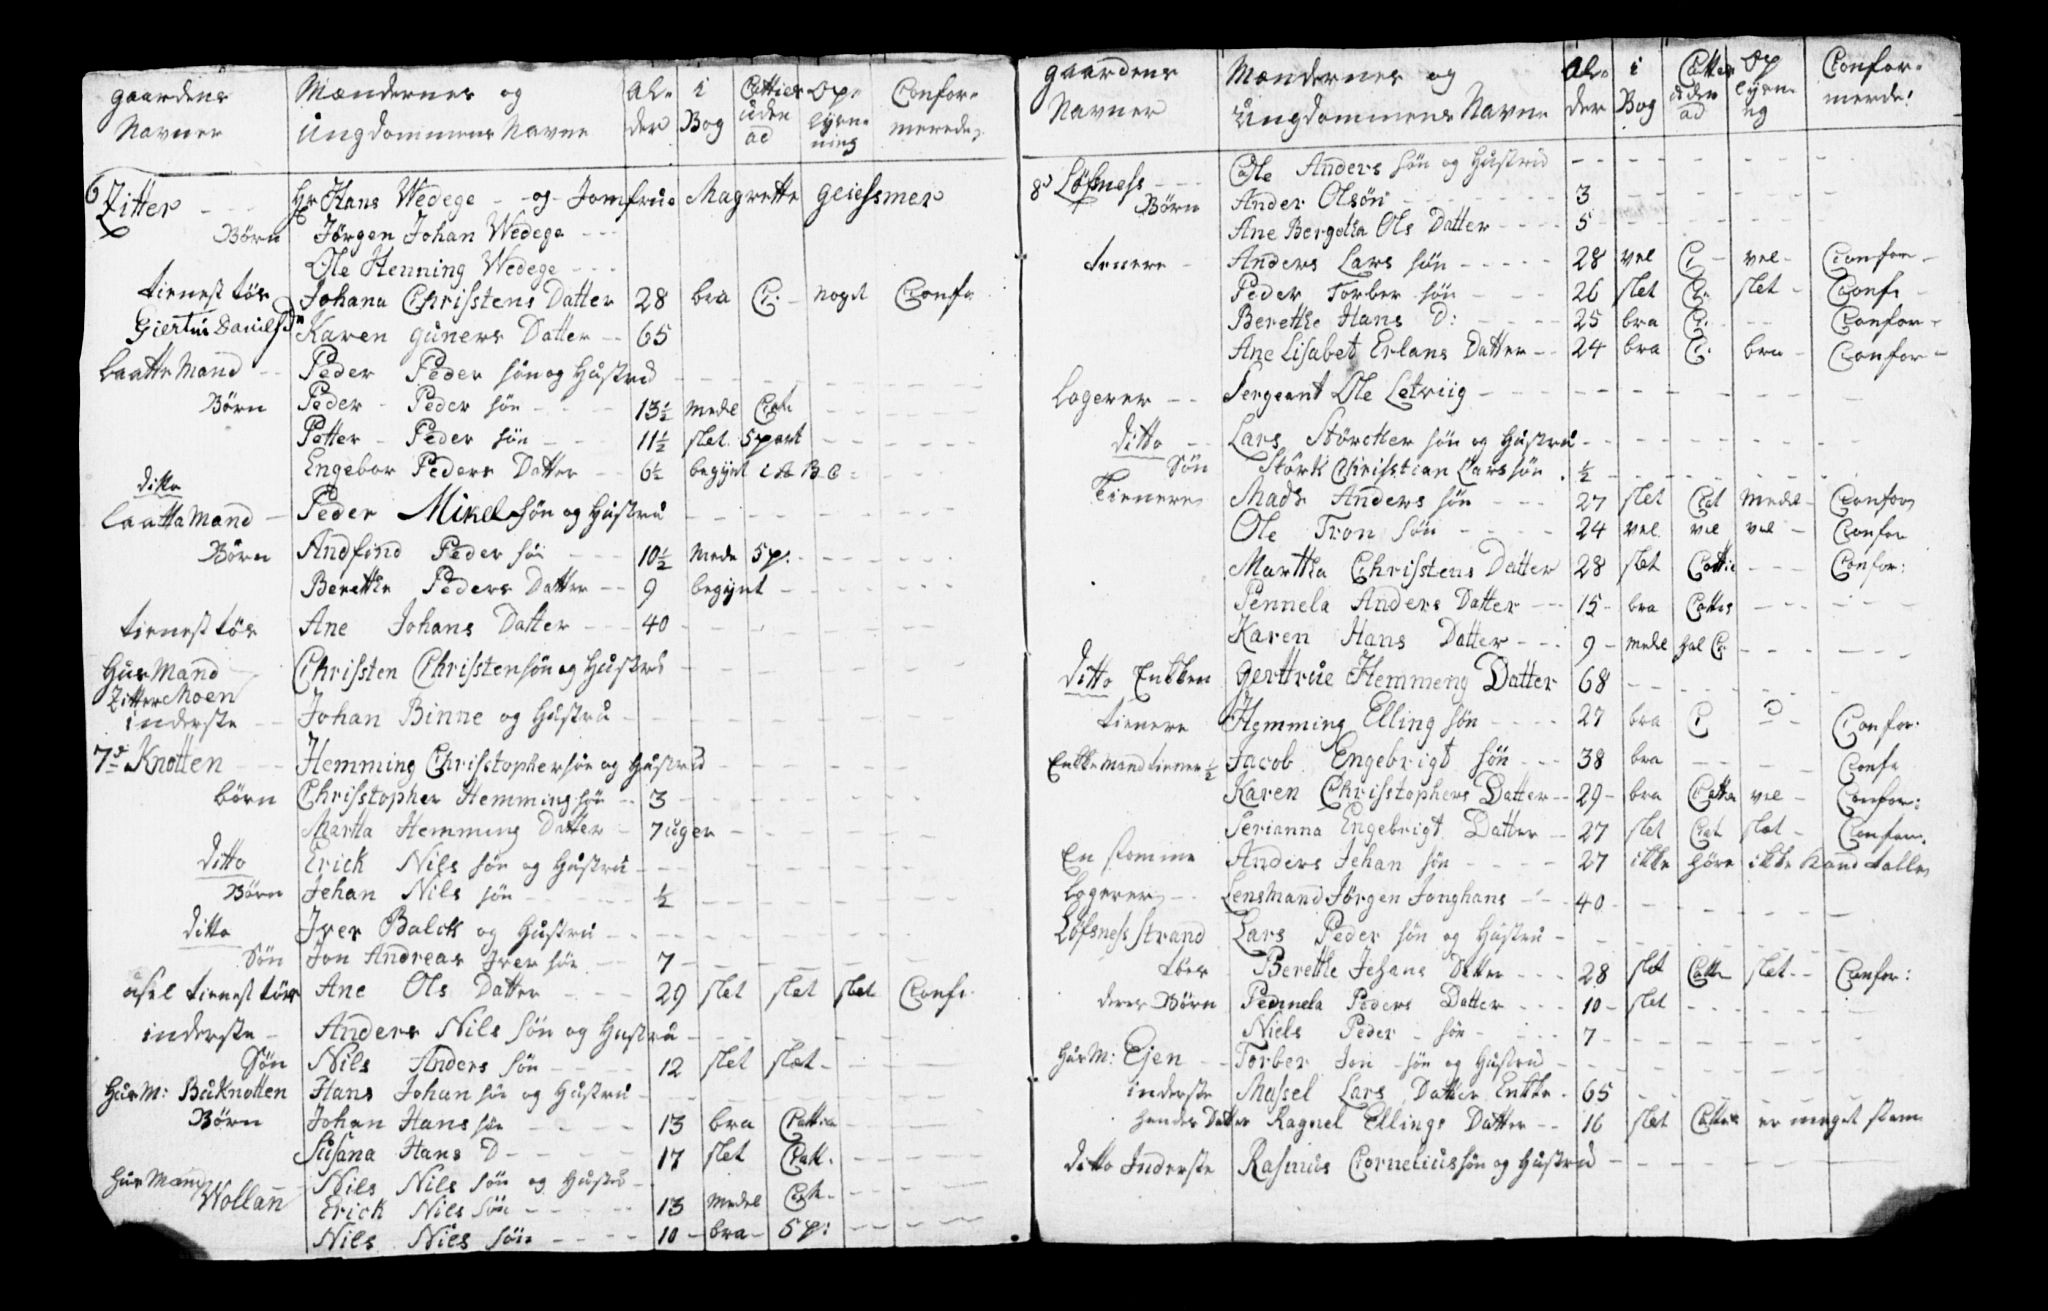 gaardens Mændernes og Al- i Cattics Op- Confor-
Navner Ungdommens Navne der Bog uden lysn- merede
ad ning
6 Zitter - - - Hr Hans Wedege - - og - Jomfrue Magrette Giessmer
Børn Jørgen Johan Wedege - - -
Ole Henning Wedege - - -
tienest tøs Johana Christens Datter 28 bra C: - noget Conf:
Karen Guners Datter - - 65
Laatte Mand - - Peder Peder søn og Hustrud - - - - -
Børn Peder - Peder søn - - - 13½ medel Cat. - - - -
Petter - Peder søn - - 11½ slet. 5 part - - - - -
Engebor Peders Datter - - 6½ begynt i A B C - - - -
ditto
Laatta Mand - Peder Mikel søn og Hustru - - - - -
Børn Andfind Peder søn - - - 10½ Mede 5 p. - - - - -
Berethe Peders Datter - - 9 begynt - - - - -
tienest tøs Ane Johans Datter - - - 40 - - - - -
Hus Mand Christen Christensøn og Hustru - - - - -
Zitter Moen
inderste - - Johan Binne og Hustru -
7d Knotten - - - Hemming Christophersøn og Hustrud - - - - -
børn Christopher Hemming søn - - 3 - - - - -
Martta Hemmings Datter - 7 uger - - - - -
ditto Erick Nils søn og Hustru - - - - -
Børn Jehan Nils søn - - - ½ - - - - -
ditto Iver Balck og Hustru - - - - -
Søn Jon Andreas Iver søn - - 7 - - - - -
tienest tøs Ane Ols Datter - - - 29 slet slet slet Conf:
inderste - Anders Nils søn og Hustru - - - - -
Søn Nils Anders søn - - - - 12 slet slet - - - -
Hus M: Buknotten Hans Johan søn og Hustru - - - - -
Børn Johan Hans søn - - - - 13 bra Cattica - - - -
Susana Hans D - - - - 17 slet Catt. - - - -
Hus Mand Wollan Nils Nils søn og Hustru -
Erick Nils søn - - - - 13 medel Cat. - - - -
Nils Nils søn - - - - 10 - bra - 5 p: - - - -
gaardens Mændernes og Al- i Cattics Op Confor-
Navner Ungdommens Navne der Bog uden lysn- merede:
ad
8d Løfsness - - - Ole Anders søn og Hustrud - - - - -
Børn Ander Olsøn - - - - - 3 - - - - -
Ane Bergetha Ols Datter - - - - 5 - - - - -
tenere - Anders Lars søn - - - - - 28 vel C: - vel - Confor -
Peder Torber søn - - - 26 slet C: slet - Conf: -
Berethe Hans D: - - - - 25 bra C: - - Confor -
Ane Lisabet Erlans Datter - - 24 bra C: bra - Confor -
Logerer - - Sergeant Ole - - - - -
ditto - - Lars Størcker søn og Hustru - - - - -
Søn Størk Christian Lars søn . ½ - - - - -
Tienere Mads Anders søn - - - 27 slet Cat medel - Confor
Ole Tron søn - - - - 24 vel vel vel - Confor
Martha Christens Datter 28 slet Cattic - - - Confor:
Pennela Anders Datter - - - 15 - bra Cattis - - - -
Karen Hans Datter - - - 9 - medel hal C: - - - -
ditto Enkken Gerttrue Hemmeng Datter 68 - - - - -
tienere Hemming Elling søn - - - - 27 bra C - Confor.
Enkke Mand tiener ½ Jacob Engebrigt søn - - - 38 bra - - - - Conf:
Karen Christophers Datter - - 29 - bra Cattic vel - Confor:
Serianna Engebrigt Datter - - 27 slet Cat slet - Confor.
En stomme Anders Jehan søn - - - - 27 ikke høre ikke kand talle
Logerer - - Lensmand Jørgen Jonghans - - 40 - - - - -
Løfsness Strand Lars Peder søn og Hustru - - - - -
tøes - Berethe Jehans Datter - - - 28 slet Catt slet - - Confor:
deres Børn Pennela Peders Datter - - - 10 - slet - - - - -
Niels Peder - søn - - - 7 - - - - -
Hus M: Ejen - - Torber Jon søn og Hustrud - - - - -
inderste Massel Lars Datter Enkke . 65 - - - - -
Hendes Datter Ragnel Ellings Datter - - 16 slet Cattic er meget stom
ditto Inderste Rasmus Cornelius søn og Hustrud - - - - -